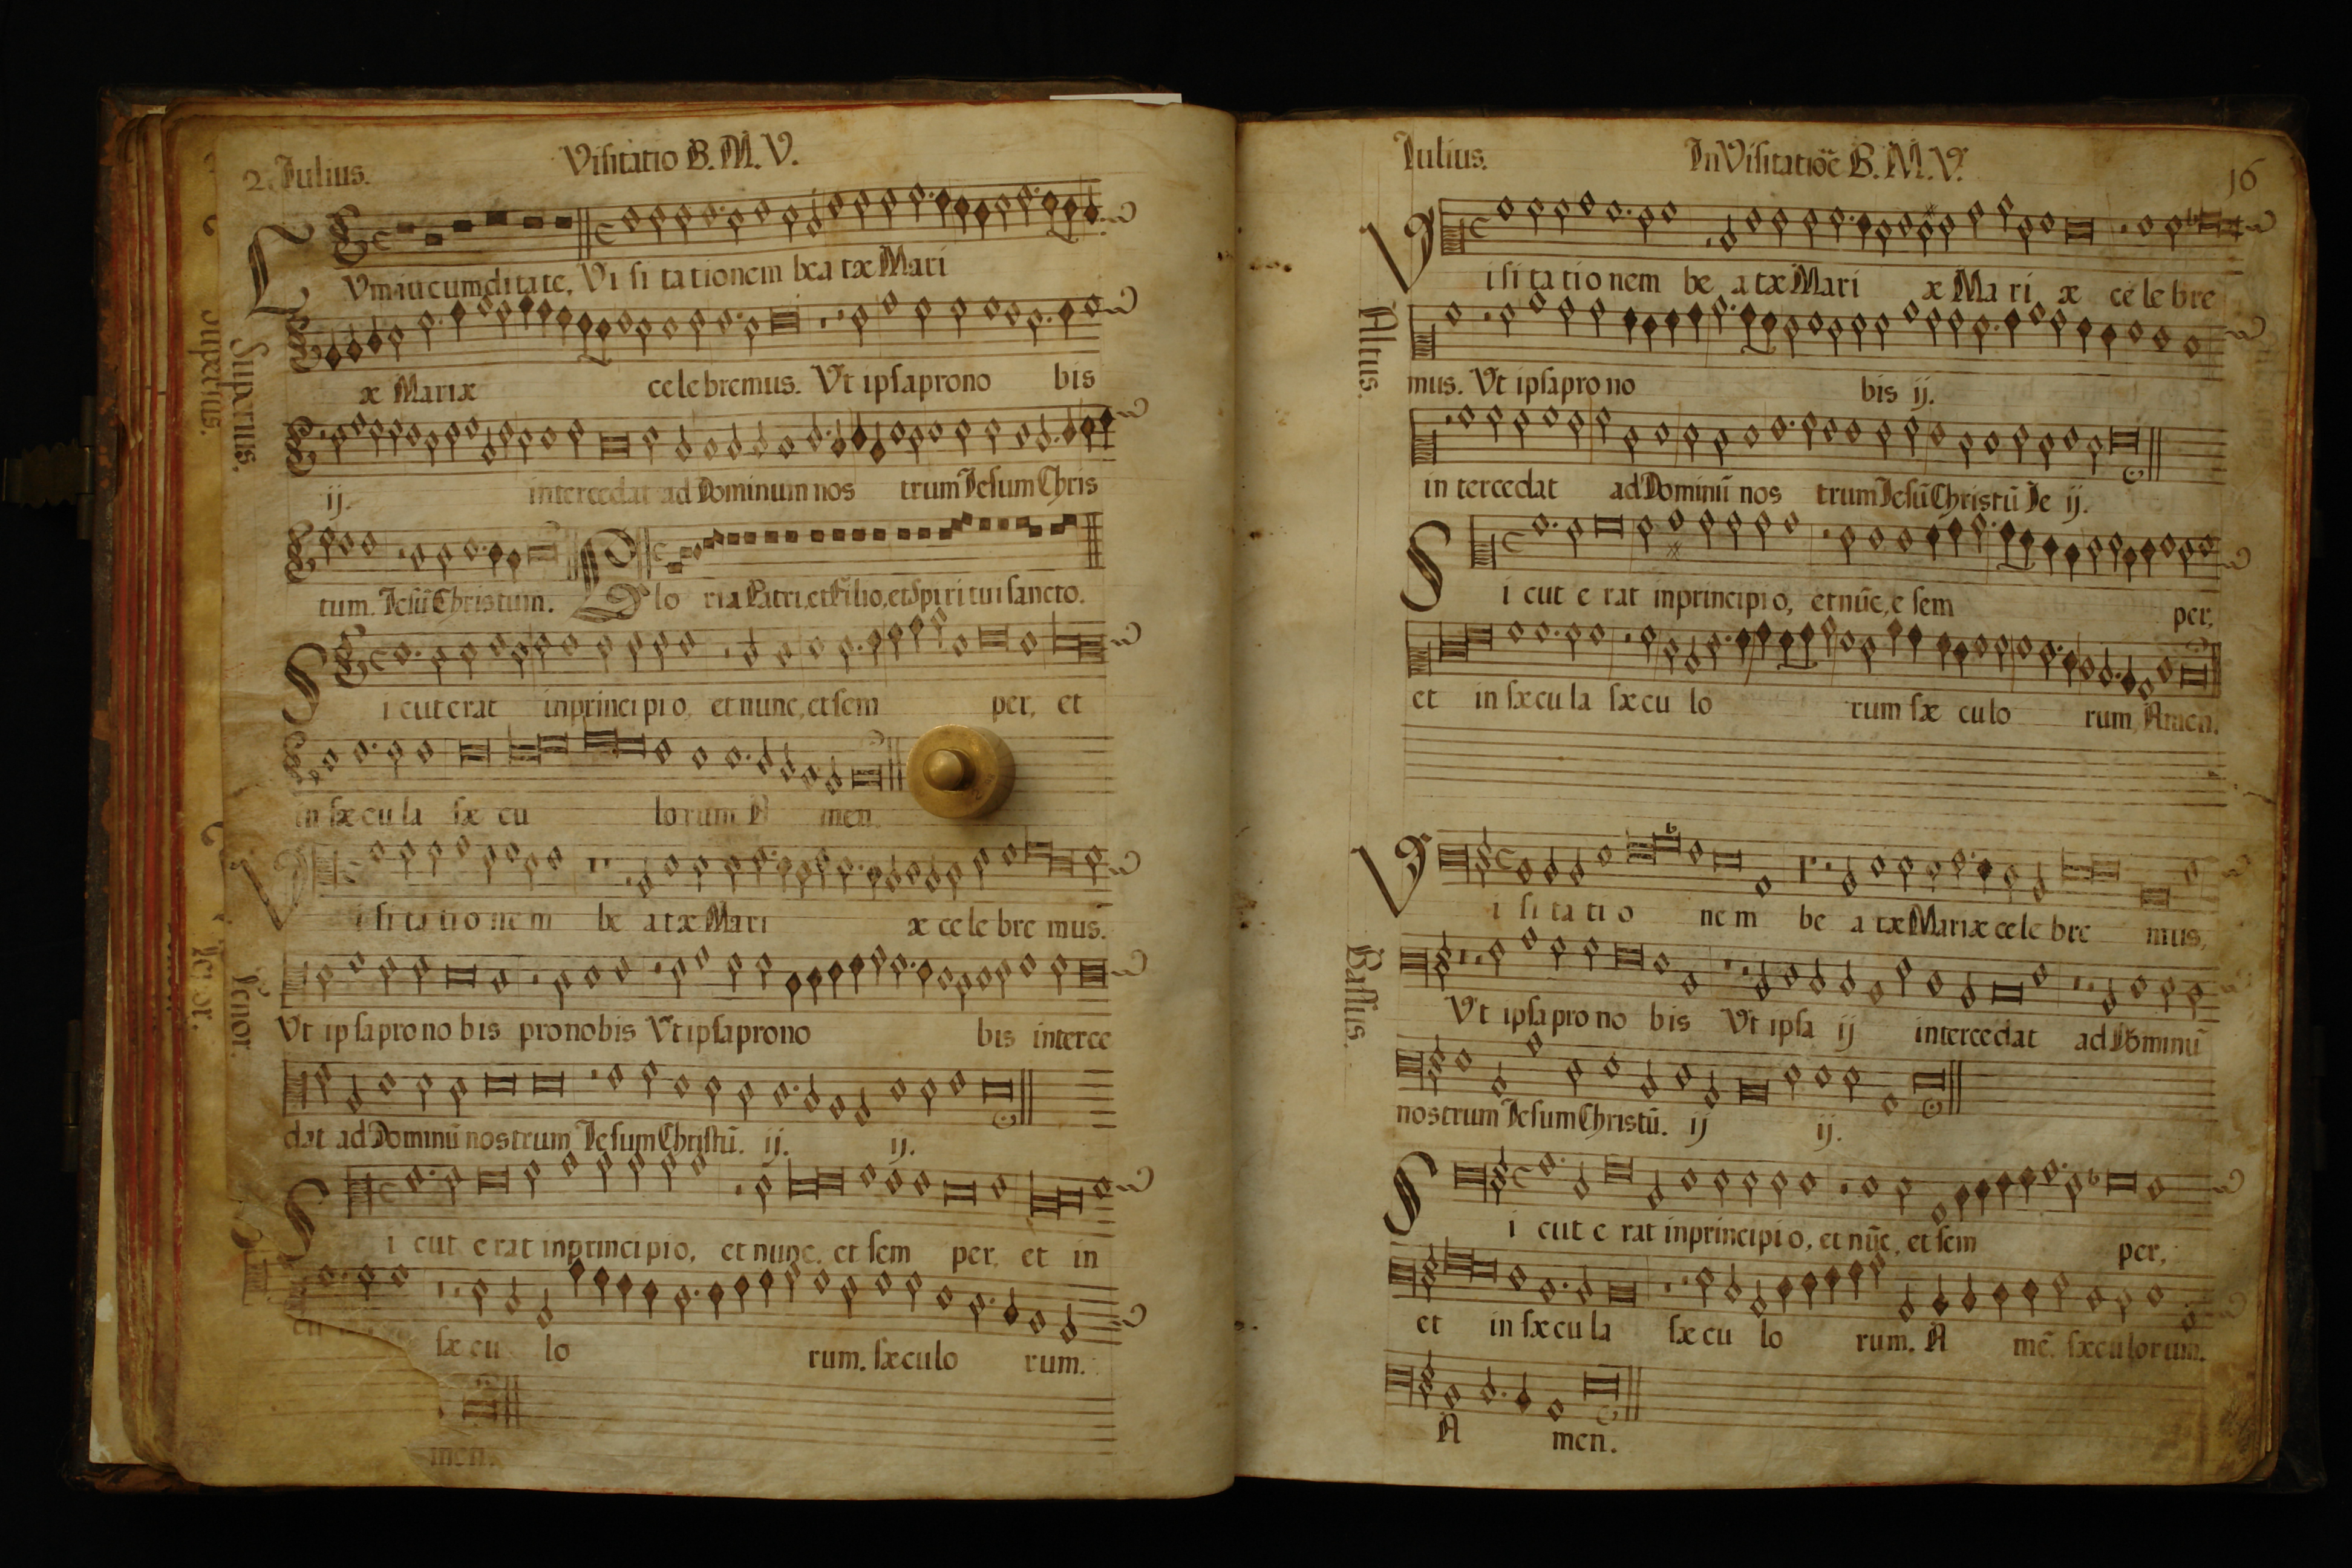 2. Iulius.
Visitatio B. M. V.
Vm iucunditate, Vi si ta tionem bea tæ Mari
æ Mariæ cele bremus. Vt ipsa prono bis
ij. intercedat ad Dominum nos trum Iesum Chris
tum. Iesũ Christum. Glo ria Patri, et Filio, et Spiri tui sancto.
Sicut erat inprinci pi o, et nunc, et sem per, et
in sæ cu la sæ cu lo rum A men.
Superius.
Superius.
Vi si ta tio ne m be a tæ Mari æ ce le bre mus.
Vt ip sa pro no bis pro nobis Vt ipsa prono bis interce
dat ad Dominũ nostrum Iesum Christũ. ij. ij.
Si cut e rat inprincipio, et nunc, et sem per, et in
sæ cu lo rum. sæculo rum.
men.
Tenor.
Iulius.
In Visitatiõe B. M. V.
16
Visi ta tio nem be a tæ Mari æ Ma ri æ ce le bre
mus. Vt ipsa pro no bis ij.
in tercedat ad Dominũ nos trum Iesũ Christũ Ie ij.
Si cut e rat inprincipi o, et nũc, e sem per,
et in sæ cu la sæ cu lo rum sæ cu lo rum, Amen.
Altus.
Vi si ta ti o ne m be a tæ Mariæ cele bre mus,
Vt ipsa pro no bis Vt ipsa ij intercedat ad Dominũ
nostrum Iesum Christũ. ij ij.
Si cut e rat inprincipi o, et nũc, et sem per,
et in sæ cu la sæ cu lo rum. A mẽ. sæculorum.
A men.
Bassus.